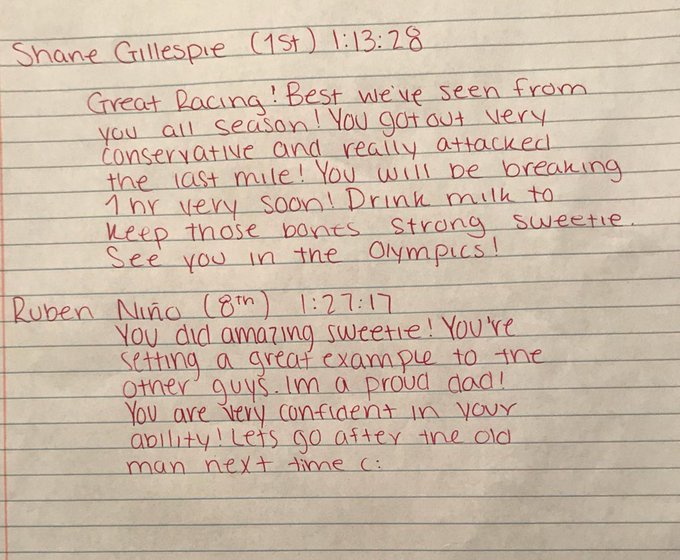 Shane Gillespie (1st) 1:13:28
Great Racing! Best we've seen from
you all season! You got out very
conservative and really attacked
the last mile! You will be breaking
1 hr very soon! Drink milk to
keep those bones strong sweetie.
See you in the Olympics!
Ruben Niño (8th) 1:27:17
You did amazing sweetie! You're
setting a great example to the
other guys. Im a proud dad!
You are very confident in your
ability! Lets go after the old
man next time c: